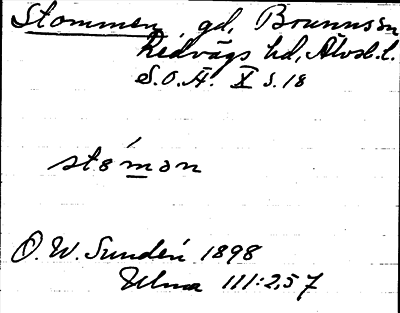 Stommen, gd, Brunns sn
Redvägs hd, Älvsb. l.
S.O.Ä. X s. 18
stó̀man
O. W. Sundén 1898
Ulma 111:257